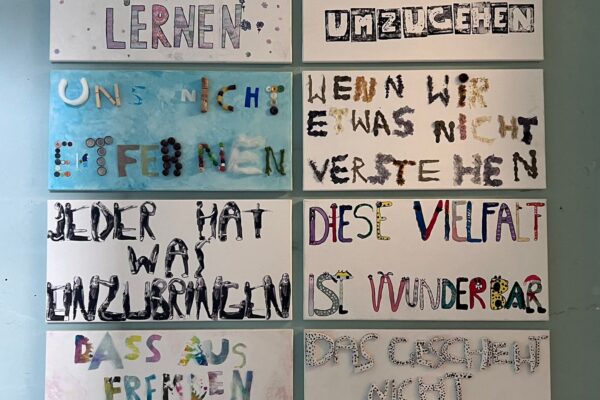 LERNEN
UMZUGEHEN
UNS NICHT
ENTFERNEN
WENN WIR
ETWAS NICHT
VERSTEHEN
JEDER HAT
WAS
EINZUBRINGEN
DIESE VIELFALT
IST WUNDERBAR
DASS AUS
FREMDEN
DAS GESCHIEHT
NICHT